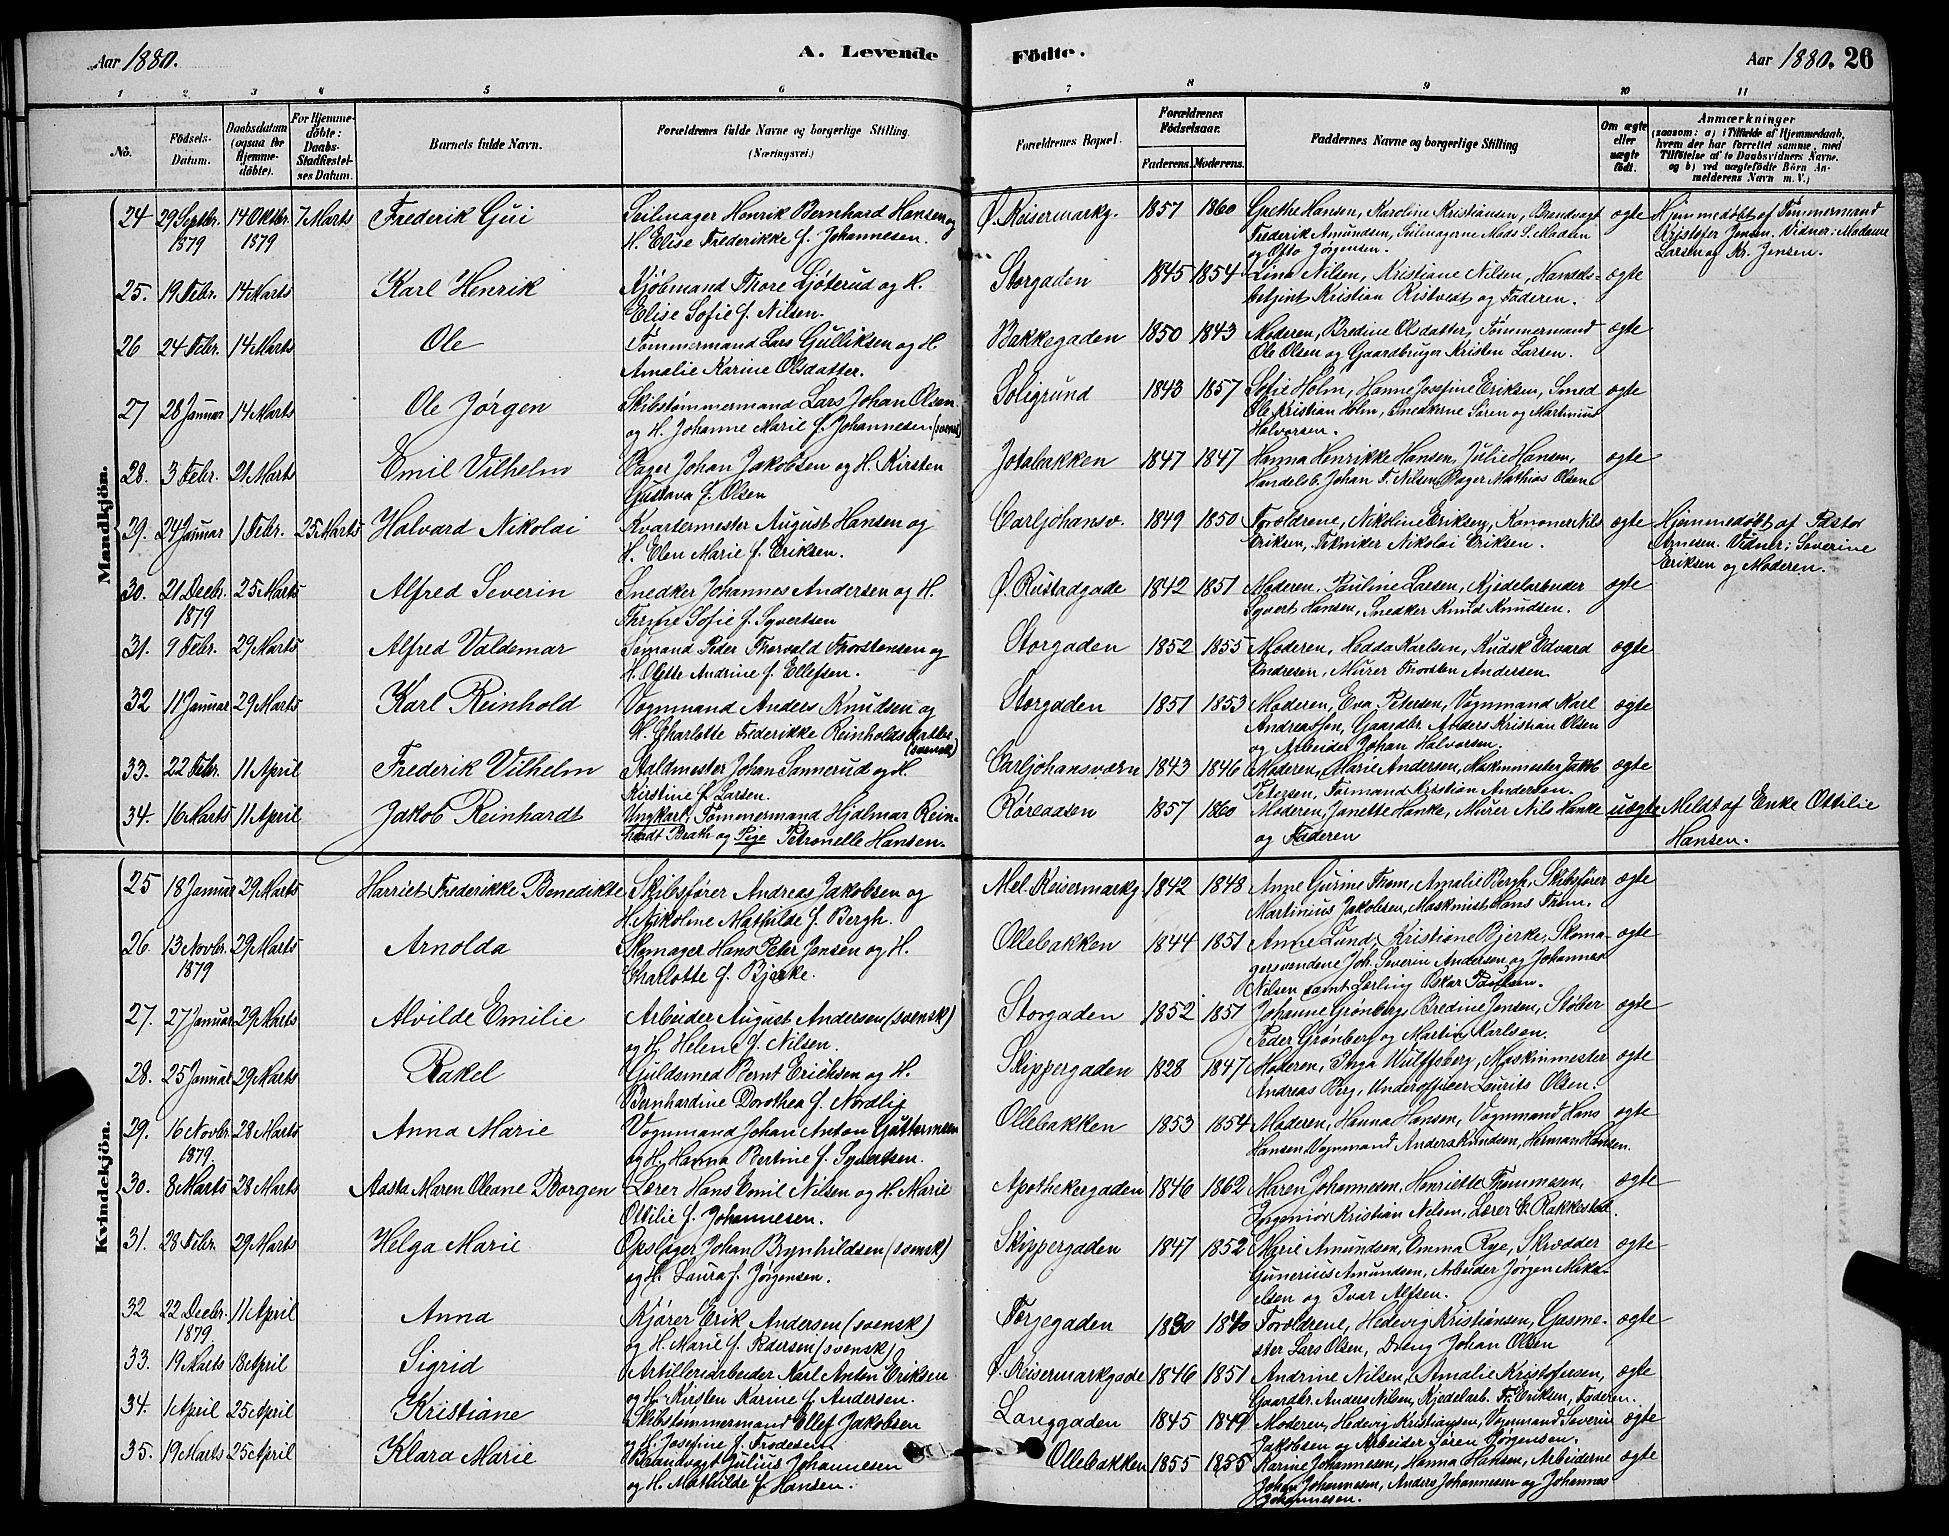 Aar 1880.
A. Levende
Födte.
Aar 1880. 26
1 2 3 4 5 6 7 8 9 10 11
No.
Födsels-
Datum.
Daabsdatum
(ogsaa for
Hjemme-
döbte).
For Hjemme-
döbte:
Daabs-
Stadfæstel-
ses Datum.
Barnets fulde Navn.
Forældrenes fulde Navne og borgerlige Stilling.
(Næringsvei.)
Forældrenes Bopæl.
Forældrenes
Födselsaar.
Faderens. Moderens.
Faddernes Navne og borgerlige Stilling
Om ægte
eller
uægte
födt.
Anmærkninger
(saasom: a) i Tilfælde af Hjemmedaab,
hvem der har forrettet samme, med
Tilföielse af to Daabsvidners Navne,
og b) ved uægtefödte Börn An-
melderens Navn m. V.)
Mandkjön.
24 29 Septbr. 14 Oktbr. 7 Marts Frederik Gui Seilmager Henrik Bernhard Hansen og Ø. Keisermarkg. 1857 1860 Grethe Hansen, Karoline Kristiansen, Brandvagt ægte Hjemmedøbt af Tømmermand
1879 1879 H. Elise Frederikke f. Johannesen. Frederik Amundsen, Seilmagerne Mads S. Madsen Kristofer Jensen. Vidner: Madame
og Otto Jørgensen. Larsen og Kr. Jensen.
25. 19 Febr. 14 Marts Karl Henrik Kjøbmand Thore Ljøterud og H. Storgaden 1845 1854 Lina Nilsen, Kristiane Nilsen, Handels- ægte
Elise Sofie f. Nilsen. betjent Kristian Ristvedt og Faderen.
26 24 Febr. 14 Marts Ole Tømmermand Lars Gulliksen og H. Bakkegaden 1850 1843 Moderen, Bredine Olsdatter, Tømmermand ægte
Amalie Karine Olsdatter. Ole Olsen og Gaardbruger Kristen Larsen.
27 28 Januar 14 Marts Ole Jørgen Skibstømmermand Lars Johan Olsen Soligrund 1843 1857 Sofie Holm, Hanne Josefine Eriksen, Smed ægte
og H. Johanne Marie f. Johannesen (svensk) Ole Kristian Holm, Snedkerne Søren og Martinius
Halvorsen.
28. 3 Febr. 21 Marts Emil Vilhelm Bager Johan Jakobsen og H. Kirsten Jotabakken 1847 1847 Hanna Henrikke Hansen, Julie Hansen, ægte
Gustava f. Olsen Handelsb. Johan F. Nilsen, Bager Mathias Olsen
29. 24 Januar 1 Febr. 25 Marts Halvard Nikolai Kvartermester August Hansen og Carljohansv. 1849 1850 Forældrene, Nikoline Eriksen, Kanoner Nils ægte Hjemmedøbt af Pastor
H. Elen Marie f. Eriksen. Eriksen, Tekniker Nikolai Eriksen. Arnesen. Vidner: Severine
Eriksen og Moderen.
30. 21 Decbr. 25 Marts Alfred Severin Snedker Johannes Andersen og H. Ø. Rustadgade 1842 1851 Moderen, Pauline Larsen, Kjedelarbeider ægte
1879 Thrine Sofie f. Syvertsen Syvert Hansen, Snedker Knud Knudsen.
31. 9 Febr. 29 Marts Alfred Valdemar Sømand Peder Thorvald Thorstensen og Storgaden 1852 1855 Moderen, Hedda Karlsen, Kudsk Edvard ægte
H. Agthe Andrine f. Ellefsen. Andresen, Murer Thorsten Andersen.
32 11 Januar 29 Marts Karl Reinhold Vognmand Anders Knudsen og Storgaden 1851 1853 Moderen, Eva Petersen, Vognmand Karl ægte
H. Charlotte Frederikke Reinholdsdatter Andreassen, Gaardbr. Anders Kristian Olsen
(svensk) og Arbeider Johan Halvorsen.
33. 22 Febr. 11 April Frederik Vilhelm Staldmester Johan Sannerud og H. Carljohansværn 1843 1846 Moderen, Marie Andersen, Maskinmester Jakob ægte
Kirstine f. Larsen. Petersen, Formand Kristian Andersen.
34. 16 Marts 11 April Jakob Reinhardt Ungkarl, Tømmermand Hjalmar Rein- Røreaasen 1857 1860 Moderen, Janette Hanke, Murer Nils Hanke uægte Meldt af Enke Ottilie
hardt Brath og Pige Petronelle Hansen. og Faderen Hansen.
Kvindekjön.
25 18 Januar 29 Marts Harriet Frederikke Benedikte Skibsfører Andreas Jakobsen og Mel. Keisermarkg. 1842 1848 Anne Gurine Thom, Amalie Bergh, Skibsfører ægte
H. Nikoline Mathilde f. Bergh. Martinius Jakobsen, Maskinist Hans Thom.
26. 13 Novbr. 29 Marts Arnolda Skomager Hans Peter Jensen og H. Ollebakken 1844 1851 Anne Lund, Kristiane Bjerke, Skoma- ægte
1879 Charlotte f. Bjerke. gersvendene Joh. Severin Andersen og Johannes
Nilsen samt Lærling Oskar Paulsen.
27. 27 Januar 29 Marts Alvilde Emilie Arbeider August Andersen (svensk) Storgaden 1852 1851 Johanne Grønberg, Bredine Jensen, Støber ægte
og H. Helene f. Nilsen. Peder Grønberg og Martin Karlsen.
28. 25 Januar 29 Marts Rakel Guldsmed Bernt Erichsen og H. Skippergaden 1828 1847 Moderen, Inga Wulfsberg, Maskinmester ægte
Bernhardine Dorothea f. Nordlie Andreas Berg, Underofficer Laurits Olsen.
29. 16 Novbr. 28 Marts Anna Marie Vognmand Johan Anton Guttormsen Ollebakken 1853 1854 Moderen, Hanna Hansen, Vognmand Hans ægte
1879. og H. Hanna Bertine f. Syvertsen. Hansen, Vognmand Anders Knudsen, Herman Hansen.
30. 8 Marts 28 Marts Aasta Maren Oleane Borgen Lærer Hans Emil Nilsen og H. Marie Apothekergaden 1846 1862 Maren Johannesen, Henriette Thommesen, ægte
Ottilie f. Johannesen. Ingeniør Kristian Nilsen, Lærer C. Rakkestad.
31. 28 Febr. 29 Marts Helga Marie Opslager Johan Brynhildsen (svensk) Skippergaden 1847 1852 Marie Amundsen, Emma Rye, Skrædder ægte
og H. Laura f. Jørgensen. Gunerius Amundsen, Arbeider Jørgen Mika-
elsen og Ivar Alfsen.
32 22 Decbr. 11 April Anna Kjører Erik Andersen (svensk) Færjegaden 1830 1840 Forældrene, Hedevig Kristiansen, Gasme- ægte
1879. og H. Marie f. Pedersen (svensk) ster Lars Olsen, Dreng Johan Olsen
33. 19 Marts 18 April Sigrid Artilleriarbeider Karl Anton Eriksen Ø. Keisermarkgade 1846 1851 Andrine Nilsen, Amalie Kristofersen, ægte
og H. Kirsten Karine f. Andersen. Gaardbr. Anders Nilsen, Kjedelarb. Fr. Eriksen, Faderen.
34. 1 April 25 April Kristiane Skibstømmermand Ellef Jakobsen Langgaden 1845 1849 Moderen, Hedevig Kristiansen, Vognmand Severin ægte
og H. Josefine f. Frodesen Jakobsen og Arbeider Søren Jørgensen.
35. 19 Marts 25 April Klara Marie Brandvagt Julius Johannesen Ollebakken 1855 1855 Karine Johannesen, Hanna Hansen, Arbeiderne ægte
og H. Mathilde f. Hansen. Johan Johannesen, Anders Johannesen og Johannes
Johannesen.